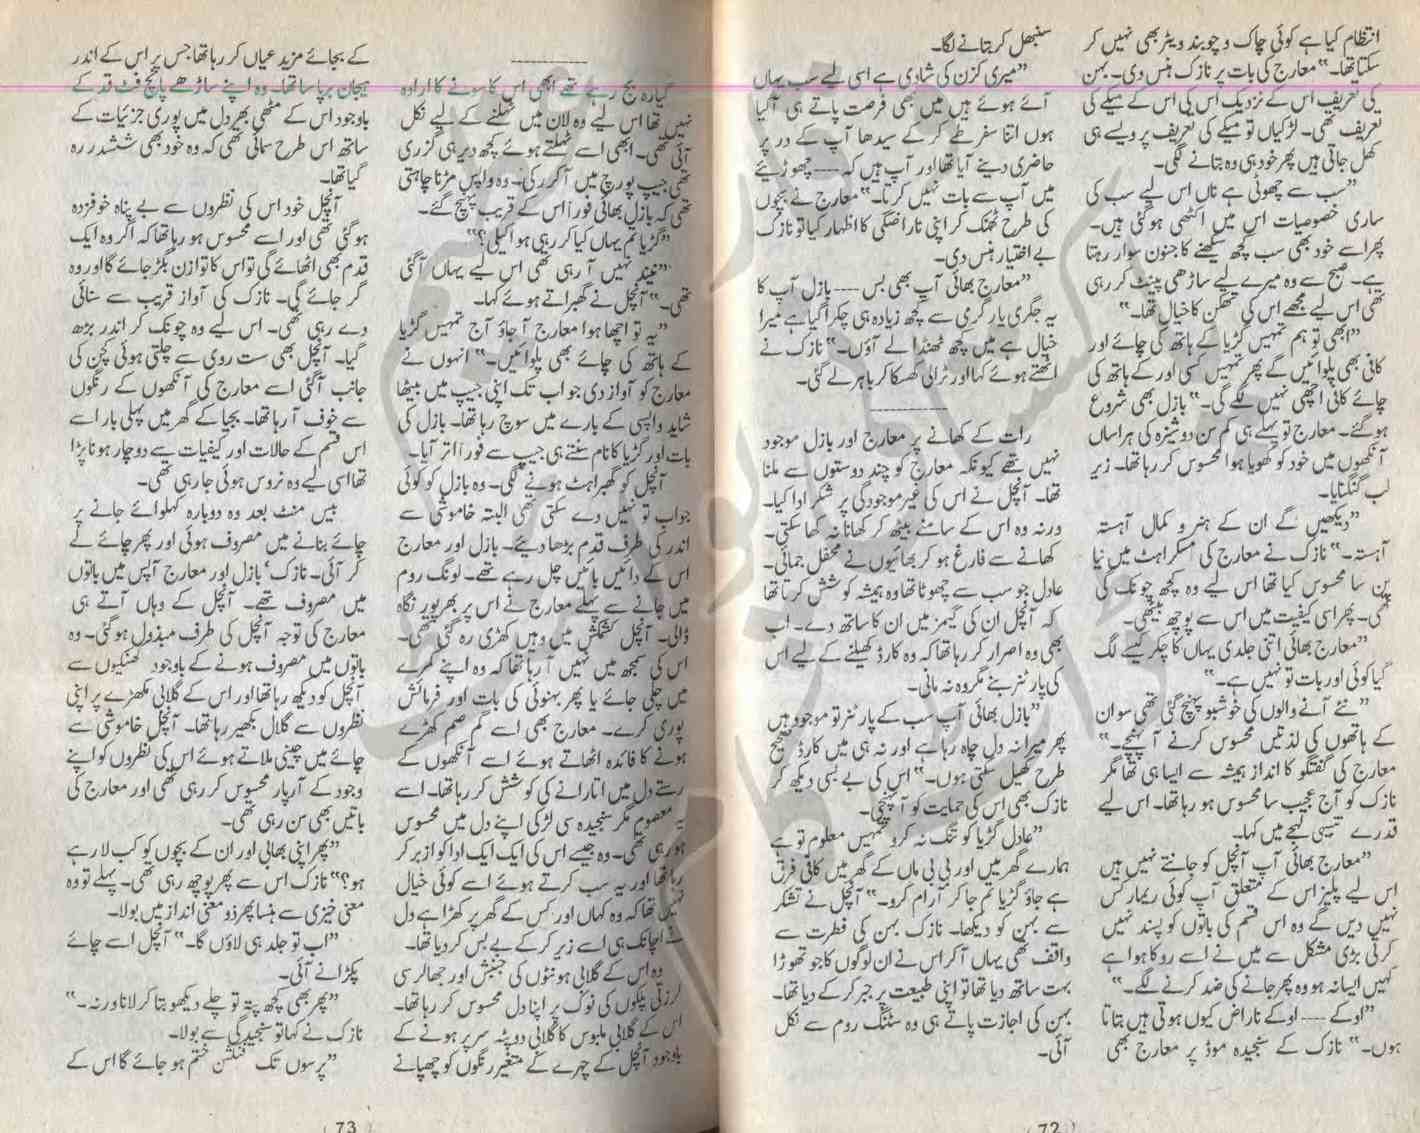 انتظام کیا ہے کوئی چاک و چوبند ویٹر بھی نہیں کر
سکتا تھا۔" معارج کی بات پر نازک ہنس دی۔ بہن
کی تعریف اس کے نزدیک اس کی اس کے میکے کی
تعریف تھی۔ لڑکیاں تو میکے کی تعریف پر ویسے ہی
کھل جاتی ہیں پھر خود ہی وہ بتانے لگی۔
"سب سے چھوٹی ہے ناں اس لیے سب کی
ساری خصوصیات اس میں اکٹھی ہو گئی ہیں۔
پھر اسے خود بھی سب کچھ سیکھنے کا جنون سوار رہتا
ہے۔ صبح سے وہ میرے لیے ساڑھی پینٹ کر رہی
تھی اس لیے مجھے اس کی تھکن کا خیال تھا۔"
"ابھی تو ہم تمہیں گڑیا کے ہاتھ کی چائے اور
کافی بھی پلوائیں گے پھر تمہیں کسی اور کے ہاتھ کی
چائے کافی اچھی نہیں لگے گی۔" بازل بھی شروع
ہو گئے۔ معارج تو پہلے ہی کم سن دوشیزہ کی ہراساں
آنکھوں میں خود کو کھویا ہوا محسوس کر رہا تھا۔ زیر
لب گنگنایا۔
"دیکھیں گے ان کے ہنر و کمال آہستہ
آہستہ۔" نازک نے معارج کی مسکراہٹ میں نیا
پن سا محسوس کیا تھا اس لیے وہ کچھ چونک گئی
تھی۔ پھر اسی کیفیت میں اس سے پوچھ بیٹھی۔
"معارج بھائی اتنی جلدی یہاں کا چکر کیسے لگ
گیا کوئی اور بات تو نہیں ہے۔"
"نئے آنے والوں کی خوشبو پہنچ گئی تھی سو ان
کے ہاتھوں کی لذتیں محسوس کرنے آ پہنچے۔"
معارج کی گفتگو کا انداز ہمیشہ سے ایسا ہی تھا مگر
نازک کو آج عجیب سا محسوس ہو رہا تھا۔ اس لیے
قدرے لہجے میں کہا۔
"معارج بھائی آپ آنچل کو جانتے نہیں ہیں
اس لیے پلیز اس کے متعلق آپ کوئی ریمارکس
نہیں دیں گے وہ اس قسم کی باتوں کو پسند نہیں
کرتی بڑی مشکل سے میں نے اسے روکا ہوا ہے
کہیں ایسا نہ ہو وہ پھر جانے کی ضد کرنے لگے۔"
"اوکے ---- اوکے ناراض کیوں ہوتی ہیں بتاتا
ہوں۔" نازک کے سنجیدہ موڈ پر معارج بھی
سنبھل کر بتانے لگا۔
"میری کزن کی شادی ہے اسی لیے سب یہاں
آئے ہوئے ہیں میں بھی فرصت پاتے ہی آ گیا
ہوں اتنا سفر طے کر کے سیدھا آپ کے در پر
حاضری دینے آیا تھا اور آپ ہیں کہ ---- چھوڑیئے
میں آپ سے بات نہیں کرتا۔" معارج نے بچوں
کی طرح ٹھنک کر اپنی ناراضگی کا اظہار کیا تو نازک
بے اختیار ہنس دی۔
"معارج بھائی آپ بھی بس ---- بازل آپ کا
یہ جگری یار گرمی سے کچھ زیادہ ہی چکرا گیا ہے میرا
خیال ہے میں کچھ ٹھنڈا لے آؤں۔" نازک نے
اٹھتے ہوئے کہا اور ٹرالی گھسکا کر باہر لے گئی۔
----------
رات کے کھانے پر معارج اور بازل موجود
نہیں تھے کیونکہ معارج کو چند دوستوں سے ملنا
تھا۔ آنچل نے اس کی غیر موجودگی پر شکر ادا کیا۔
ورنہ وہ اس کے سامنے بیٹھ کر کھانا نہ کھا سکتی۔
کھانے سے فارغ ہو کر بھائیوں نے محفل جمائی۔
عادل جو سب سے چھوٹا تھا وہ ہمیشہ کوشش کرتا تھا
کہ آنچل ان کی گیمز میں ان کا ساتھ دے۔ اب
بھی وہ اصرار کر رہا تھا کہ وہ کارڈ کھیلنے کے لیے اس
کی پارٹنر بنے مگر وہ نہ مانی۔
"بازل بھائی آپ سب کے پارٹنر تو موجود ہیں
پھر میرا نہ دل چاہ رہا ہے اور نہ ہی میں کارڈ صحیح
طرح کھیل سکتی ہوں۔" اس کی بے بسی دیکھ کر
نازک بھی اس کی حمایت کو آ پہنچی۔
"عادل گڑیا کو تنگ نہ کرو تمہیں معلوم تو ہے
ہمارے گھر میں اور بی بی ماں کے گھر میں کافی فرق
ہے جاؤ گڑیا تم جا کر آرام کرو۔" آنچل نے تشکر
سے بہن کو دیکھا۔ نازک بہن کی فطرت سے
واقف تھی یہاں آ کر اس نے ان لوگوں کا جو تھوڑا
بہت ساتھ دیا تھا تو اپنی طبیعت پر جبر کر کے دیا تھا۔
بہن کی اجازت پاتے ہی وہ سٹنگ روم سے نکل
آئی۔
72
----------
گیارہ بج رہے تھے ابھی اس کا سونے کا ارادہ
نہیں تھا اس لیے وہ لان میں ٹہلنے کے لیے نکل
آئی تھی۔ ابھی اسے ٹہلتے ہوئے کچھ دیر ہی گزری
تھی جیپ پورچ میں آ کر رکی۔ وہ واپس مڑنا چاہتی
تھی کہ بازل بھائی فوراً اس کے قریب پہنچ گئے۔
"گڑیا تم یہاں کیا کر رہی ہو اکیلی؟"
"نیند نہیں آ رہی تھی اس لیے یہاں آ گئی
تھی۔" آنچل نے گھبراتے ہوئے کہا۔
"یہ تو اچھا ہوا معارج آ جاؤ آج تمہیں گڑیا
کے ہاتھ کی چائے بھی پلوائیں۔" انہوں نے
معارج کو آواز دی جو اب تک اپنی جیپ میں بیٹھا
شاید واپسی کے بارے میں سوچ رہا تھا۔ بازل کی
بات اور گڑیا کا نام سنتے ہی جیپ سے فوراً اتر آیا۔
آنچل کو گھبراہٹ ہونے لگی۔ وہ بازل کو کوئی
جواب تو نہیں دے سکتی تھی البتہ خاموشی سے
اندر کی طرف قدم بڑھا دیے۔ بازل اور معارج
اس کے دائیں بائیں چل رہے تھے۔ لونگ روم
میں جانے سے پہلے معارج نے اس پر بھرپور نگاہ
ڈالی۔ آنچل کشمکش میں وہیں کھڑی رہ گئی تھی۔
اس کی سمجھ میں نہیں آ رہا تھا کہ وہ اپنے کمرے
میں چلی جائے یا پھر بہنوئی کی بات اور فرمائش
پوری کرے۔ معارج بھی اسے گم صم کھڑے
ہونے کا فائدہ اٹھاتے ہوئے اسے آنکھوں کے
رستے دل میں اتارنے کی کوشش کر رہا تھا۔ اسے
یہ معصوم مگر سنجیدہ سی لڑکی اپنے دل میں محسوس
ہو رہی تھی۔ وہ جیسے اس کی ایک ایک ادا کو ازبر کر
رہا تھا اور یہ سب کرتے ہوئے اسے کوئی خیال
نہیں تھا کہ وہ کہاں اور کس کے گھر پر کھڑا ہے دل
نے اچانک ہی اسے زیر کر کے بے بس کر دیا تھا۔
وہ اس کے گلابی ہونٹوں کی جنبش اور جھالر سی
لرزتی پلکوں کی نوک پر اپنا دل محسوس کر رہا تھا۔
اس کے گلابی ملبوس کا گلابی دوپٹہ سر پر ہونے کے
باوجود آنچل کے چہرے کے متغیر رنگوں کو چھپانے
کے بجائے مزید عیاں کر رہا تھا جس پر اس کے اندر
ہیجان برپا سا تھا۔ وہ اپنے ساڑھے پانچ فٹ قد کے
باوجود اس کے مٹھی بھر دل میں پوری جزئیات کے
ساتھ اس طرح سمائی تھی کہ وہ خود بھی ششدر رہ
گیا تھا۔
آنچل خود اس کی نظروں سے بے پناہ خوفزدہ
ہو گئی تھی اور اسے محسوس ہو رہا تھا کہ اگر وہ ایک
قدم بھی اٹھائے گی تو اس کا توازن بگڑ جائے گا اور وہ
گر جائے گی۔ نازک کی آواز قریب سے سنائی
دے رہی تھی۔ اس لیے وہ چونک کر اندر بڑھ
گیا۔ آنچل بھی ست روی سے چلتی ہوئی کچن کی
جانب آ گئی اسے معارج کی آنکھوں کے رنگوں
سے خوف آ رہا تھا۔ بجیا کے گھر میں پہلی بار اسے
اس قسم کے حالات اور کیفیات سے دوچار ہونا پڑا
تھا اسی لیے وہ نروس ہوئی جا رہی تھی۔
بیس منٹ بعد وہ دوبارہ کہلوائے جانے پر
چائے بنانے میں مصروف ہوئی اور پھر چائے لے
کر آئی۔ نازک، بازل اور معارج آپس میں باتوں
میں مصروف تھے۔ آنچل کے وہاں آتے ہی
معارج کی توجہ آنچل کی طرف مبذول ہو گئی۔ وہ
باتوں میں مصروف ہونے کے باوجود کنکھیوں سے
آنچل کو دیکھ رہا تھا اور اس کے گلابی مکھڑے پر اپنی
نظروں سے گلال بکھیر رہا تھا۔ آنچل خاموشی سے
چائے میں چینی ملاتے ہوئے اس کی نظروں کو اپنے
وجود کے آرپار محسوس کر رہی تھی اور معارج کی
باتیں بھی سن رہی تھی۔
"پھر اپنی بھابی اور ان کے بچوں کو کب لا رہے
ہو؟" نازک اس سے پھر پوچھ رہی تھی۔ پہلے تو وہ
معنی خیزی سے ہنسا پھر ذو معنی انداز میں بولا۔
"اب تو جلد ہی لاؤں گا۔" آنچل اسے چائے
پکڑانے آئی۔
"پھر بھی کچھ پتہ تو چلے دیکھو بتا کر لانا ورنہ۔"
نازک نے کہا تو سنجیدگی سے بولا۔
"پرسوں تک فنکشن ختم ہو جائے گا اس کے
73